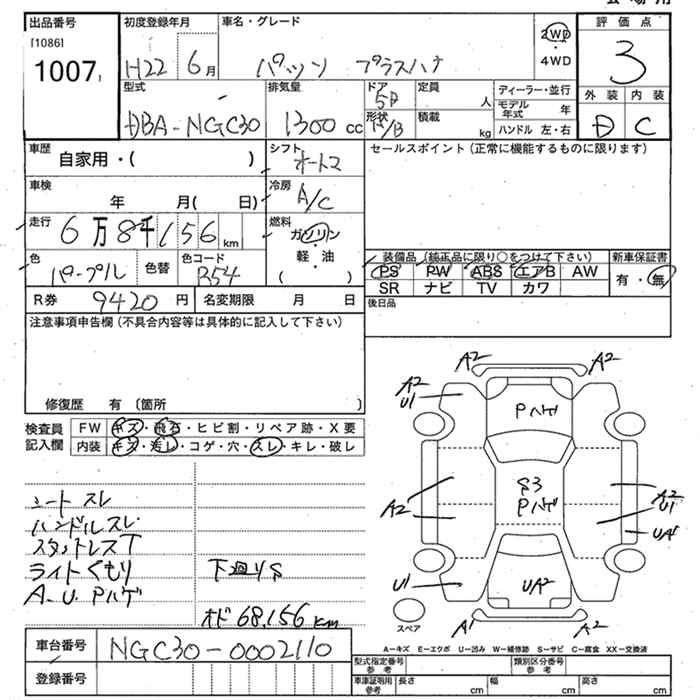 出品番号
[1086]
1007
初度登録年月
H22 6月
車名・グレード
パッソ プラスハナ
2WD
4WD
評価点
3
外装 内装
D C
型式
DBA-NGC30
排気量
1300 cc
ドア
5D
形状
H/B
定員
人
積載
kg
ディーラー・並行
モデル年式 年
ハンドル 左・右
車歴
自家用・( )
シフト
オートマ
セールスポイント(正常に機能するものに限ります)
車検
年 月( 日)
冷房
A/C
走行
6万8千156km
燃料
ガソリン
・
軽・油
( )
色
パープル
色替
色コード
R54
装備品(純正品に限り○をつけて下さい)
PS PW ABS エアB AW
SR ナビ TV カワ
新車保証書
有・無
R券 9420円
名変期限 月 日
後日品
注意事項申告欄(不具合内容等は具体的に記入して下さい)
修復歴 有 〔箇所 〕
検査員記入欄
FW キズ・飛石・ヒビ割・リペア跡・X要
内装 キズ・汚レ・コゲ・穴・スレ・キレ・破レ
シートスレ
ハンドルスレ
スタットレスT
ライトくもり
A.U.Pハゲ
下廻りS
オド68,156km
A2 A2
A2
U1
Pハゲ
A2
S3
Pハゲ
A2
U1
UA1
U1
UA2
A1 A2
スペア
A-キズ E-エクボ U-凹み W-補修跡 S-サビ C-腐食 XX-交換済
車台番号 NGC30-0002110
登録番号
型式指定番号 参考
類別区分番号 参考
車庫証明用 参考
長さ cm 幅 cm 高さ cm